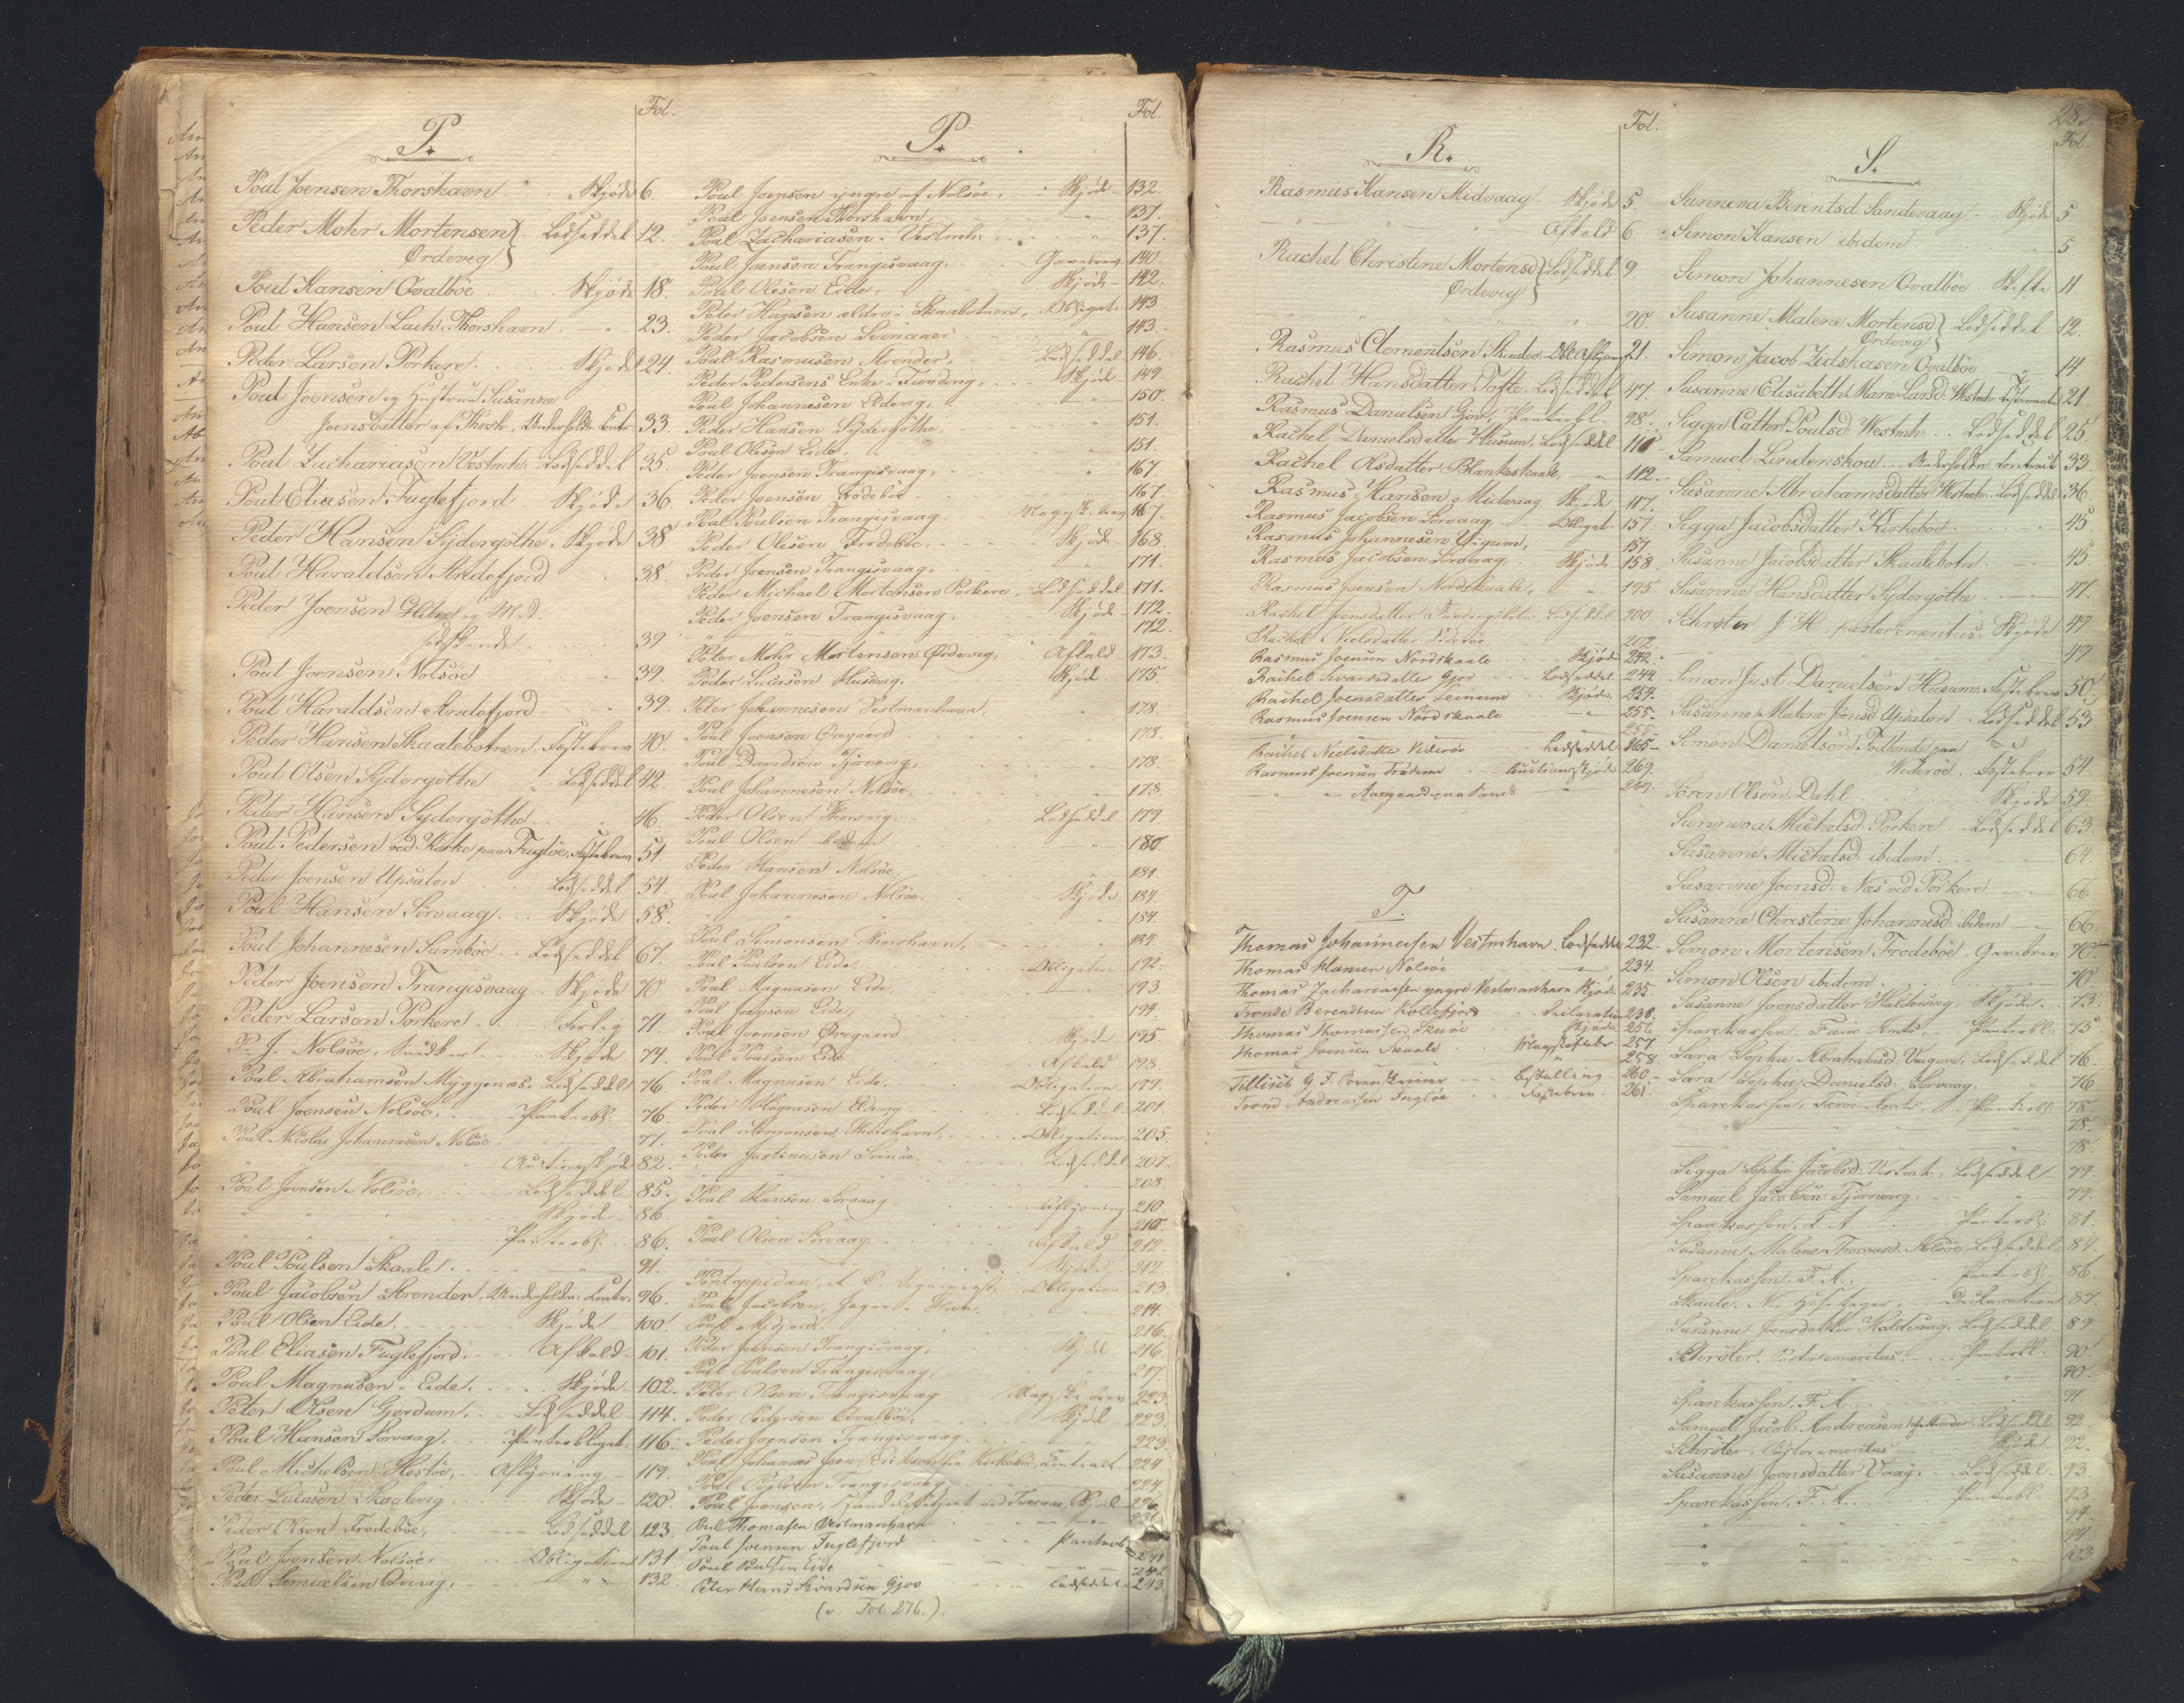 Fol.
P.
Poul Joensen Thorshavn Skjøde 6.
Peder Mohr Mortensen Lodseddel 12.
Ørdevig
Poul Hansen Qvalbøe Skjøde 18.
Poul Hansen Lach. Thorshavn — " 23.
Peder Larsen Porkere Skjøde 24.
Poul Joensen og Hustrue Susanne
Joensdatter af Thorsh. Underholdn. Contr. 33.
Poul Zachariasen Vestmh. Lodseddel 35.
Poul Eliasen Fuglefjord Skjøde 36
Peder Hansen Sydergøthe Skjøde 38
Poul Haraldsen Andefjord " 38.
Peder Joensen og Med-
39
Poul Joensen Nolsöe 39.
Poul Haraldsen Andefjord 39.
Peder Hansen Skaalebotnen Fæstebrev 40.
Poul Olsen Sydergøthe Lodseddel 42.
Peder Hansen Sydergøthe " 46.
Poul Pedersen ved Kirke paa Fugløe, Fæstebrev 51
Peder Joensen Upsalon Lodseddel 54.
Poul Hansen Sørvaag Skjøde 58.
Poul Johannesen Sumböe Lodseddel 67.
Peder Joensen Trangisvaag Skjøde 70
Peder Larsen Porkere Forlig 71.
P. J. Nolsöe, Snedker Skjøde 74.
Poul Abrahamsen Myggenæs Lodseddel 76.
Poul Joensen Nolsöe, Panteobl. 76.
Poul Nicolai Johannesen Nolsöe 77.
" " Auctionsskjøde 82.
Poul Joensen Nolsöe, Lodseddel 85.
" " Skjøde 86.
" " Panteobl. 86.
Poul Poulsen Skaale. " 91.
Poul Jacobsen Strender, Underholdn. Contr. 96.
Poul Olsen Eide. Skjøde 100.
Poul Eliasen Fuglefjord. Afkald 101.
Poul Magnusen Eide. Skjøde 102.
Peter Olsen Gjordum. Lodseddel 114.
Poul Hansen Sørvaag. Panteobligat. 116.
Poul Michelsen Hestöe, Aflysning 119.
Peder Lucasen Skaalevig Skjøde 120.
Peder Olsen Frodeböe, Lodseddel 123.
Poul Joensen Nolsöe. Obligation 131.
Poul Samuelsen Qvivig. " 132.
Fol.
P.
Poul Joensen yngre af Nolsöe. Skjøde 132.
Poul Joensen Thorshavn, " 137.
Poul Zachariasen Vestmh. " 137.
Poul Joensen Trangisvaag. Gavebrev 140.
Poul Olesen Eide, Skjøde 142.
Peter Hansen ældre Skaalebotnen, Obligat. 143
Peder Jacobsen Svinaaer 143.
Poul Rasmusen Strender, Lodseddel 146.
Peder Pedersens Enke Funding, Skjøde 149.
Poul Johannesen Eldevig, 150.
Peder Hansen Sydergøthe 151.
Poul Olesen Eide, 151.
Peder Joensen Trangisvaag, " 167.
Peder Joensen Frodeböe 167.
Poul Poulsen Trangisvaag Mageskiftebrev 167.
Peder Olesen Frodeböe, Skjøde 168.
Peder Joensen Trangisvaag, " 171.
Peder Michael Mortensen Porkere, Lodseddel 171.
Peder Joensen Trangisvaag, Skjøde 172.
" 172.
Peter Mohr Mortensen Ørdevig, Afkald 173.
Peder Lucasen Husevig. Skjøde 175.
Peter Johannesen Vestmanhavn, " 178.
Poul Joensen Øregaard " 178.
Poul Davidsen Tjørnevig, " 178.
Poul Johannesen Nolsöe, " 178.
Peder Olsen Lodseddel 179.
Poul Olsen ibidem " 180.
Peder Hansen Nolsöe. " 181.
Poul Johannesen Nolsöe. Skjøde 184.
" " 184.
Poul Simonsen Thorshavn, " 184.
Poul Poulsen Eide. Obligation 192.
Poul Magnusen Eide, 193.
Poul Joensen Eide, 194.
Poul Joensen Øregaard Skjøde 195.
Poul Poulsen Eide Afkald 198.
Poul Magnusen Eide. Obligation 199.
Peder Eldevig Lodseddel 201.
Poul Simonsen Thorshavn, Obligation 205.
Peder Justinusen Svinöe. Lodseddel 207.
" 208
Poul Hansen Sørvaag Aflysning 210.
210.
Poul Olsen Sørvaag, Afkald 212.
Skjøde 212.
Pontoppidan, Obligation 213.
Poul Jacobsen, Thorshavn. 214.
Poul 216.
Peder Joensen Trangisvaag, Skjøde 216.
Poul Poulsen Trangisvaag, 217.
Peter Olsen Trangisvaag Mageskiftebrev 223.
Peder Pedersen Qvalböe, Skjøde 223.
Peder Joensen Trangisvaag 223.
Poul Johannes Joensen Kirkeböe, Contract 224
Poul Poulsen Trangisvaag 224
Poul Joensen, ved Tveraae, Skjøde 226.
Poul Thomasen Vestmanhavn
Poul Joensen Fuglefjord Panteob. 241
Poul Poulsen Eide — 242
Peter Hans Sivardsen Gjov Lodseddel 243.
(v. Fol. 276.).
Fol.
R.
Rasmus Hansen Midvaag Skjøde 5.
" " " Afkald 6
Rachel Christine Mortensd. Lodseddel 9.
Ørdevig
" " " " 20.
Rasmus Clementsen Skuöe 21.
Rachel Hansdatter Tofte, Lodseddel 47.
Rasmus Danielsen Gjov, Panteobl. 98.
Rachel Danielsdatter Husum, Lodseddel 110
Rachel Olsdatter Blankeskaale, " 112.
Rasmus Hansen Midvaag Skjøde 117.
Rasmus Jacobsen Sørvaag Obligat. 157.
Rasmus Johannesen Vigum, 157
Rasmus Jacobsen Sørvaag Skjøde 158.
Rasmus Joensen Nordskaale, " 195
Rachel Joensdatter Lodseddel 200.
Rachel Nielsdatter Videröe 202.
Rasmus Joensen Nordskaale Skjøde 242.
Rachel Sivarsdatter Gjov Lodseddel 244
Rachel Joensdatter Leinum Skjøde 254.
Rasmus Joensen Nordskaale — " 255.
255.
Rachel Nielsdatter Videröe Lodseddel 265
Rasmus Joensen Auctionsskjøde 269.
— " — Aaregaard paa Sand " 269.
T.
Thomas Johannesen Vestmhavn Lodseddel 232.
Thomas Hansen Nolsöe — " 234.
Thomas Zachariasen yngre Vestmanhavn Skjøde 235.
Tronde Berendtsen Kollefjord Declaration 238.
Thomas Thomasen Skuöe Skjøde 256
Thomas Joensen Skaale Mageskiftebr. 257
258.
Tillisch G. F. Bestalling 260
Trond Andreasen Fuglöe Fæstebrev 261.
283
Fol.
S.
Sunneva Berentsd. Sandevaag Skjøde 5
Simon Hansen ibidem " 5.
Simon Johannesen Qvalböe Skifte 11.
Susanne Malene Mortensd. Lodseddel 12.
Ørdevig
Simon Jacob Qvalböe — " 14
Susanne Elisabeth Marie Larsd. Westmh. Testament 21.
Sigga Catter Poulsd. Westmh. Lodseddel 25.
Samuel Lindenskov Underholdn. Contract 33.
Susanne Abrahamsdatter Westmh. Lodseddel 36.
Sigga Jacobsdatter Kirkeböe 45.
Susanne Jacobsdatter Skaalebotn — 45.
Susanne Hansdatter Sydergøthe — 47.
Schrøter J. H. pastor emeritus Skjøde 49
" " " 49
Simon Just Danielsen Husum Fæstebrev 50.
Susanne Malene Joensd. Upsalon Lodseddel 53
Simon Danielsen paa
Wideröe. Fæstebrev 54.
Søren Olsen Dahl Skjøde 59.
Sunneva Michelsd. Porkere Lodseddel 63.
Susanne Michelsd. ibidem — 64.
Susanne Joensd. Næs ved Porkere — 66
Susanne Christine Johannesd. ibidem — 66.
Simon Mortensen Frodeböe Gavebrev 70.
Simon Olsen ibidem. " 70
Susanne Joensdatter Haldervig. Skjøde 73.
Sparekassen, Færöe Amts Panteobl. 75.
Sara Sophie Abrahamsd. Viigum. Lodseddel 76.
Sara Sophie Danielsd. Sørvaag. " 76
Sparekassen, Færöe Amts, Panteobl. 78.
" " " 78.
" 78.
Sigga Sophie Jacobsd. Vestmh. Lodseddel 79.
Samuel Jacobsen Tjørnevig, " 79.
Sparekassen, F. A. Panteobl. 81.
Susanne Malene Thomasd. Nolsöe Lodseddel 84.
Sparekassen, F. A. Panteobl. 86.
Skaale, N., Declaration 87.
Susanne Joensdatter Haldervig. Lodseddel 89.
Schrøter, Pastor emeritus. Panteobl. 90.
" 90.
Sparekassen, F. A. 91
Samuel Jacob Andreasen Lodseddel 92.
Schrøter, Pastor emeritus Skjøde 92.
Susanne Joensdatter Vaag. Lodseddel 93.
Sparekassen, F. A. Panteobl. 93.
" " 94.
" " 94.
" " 103